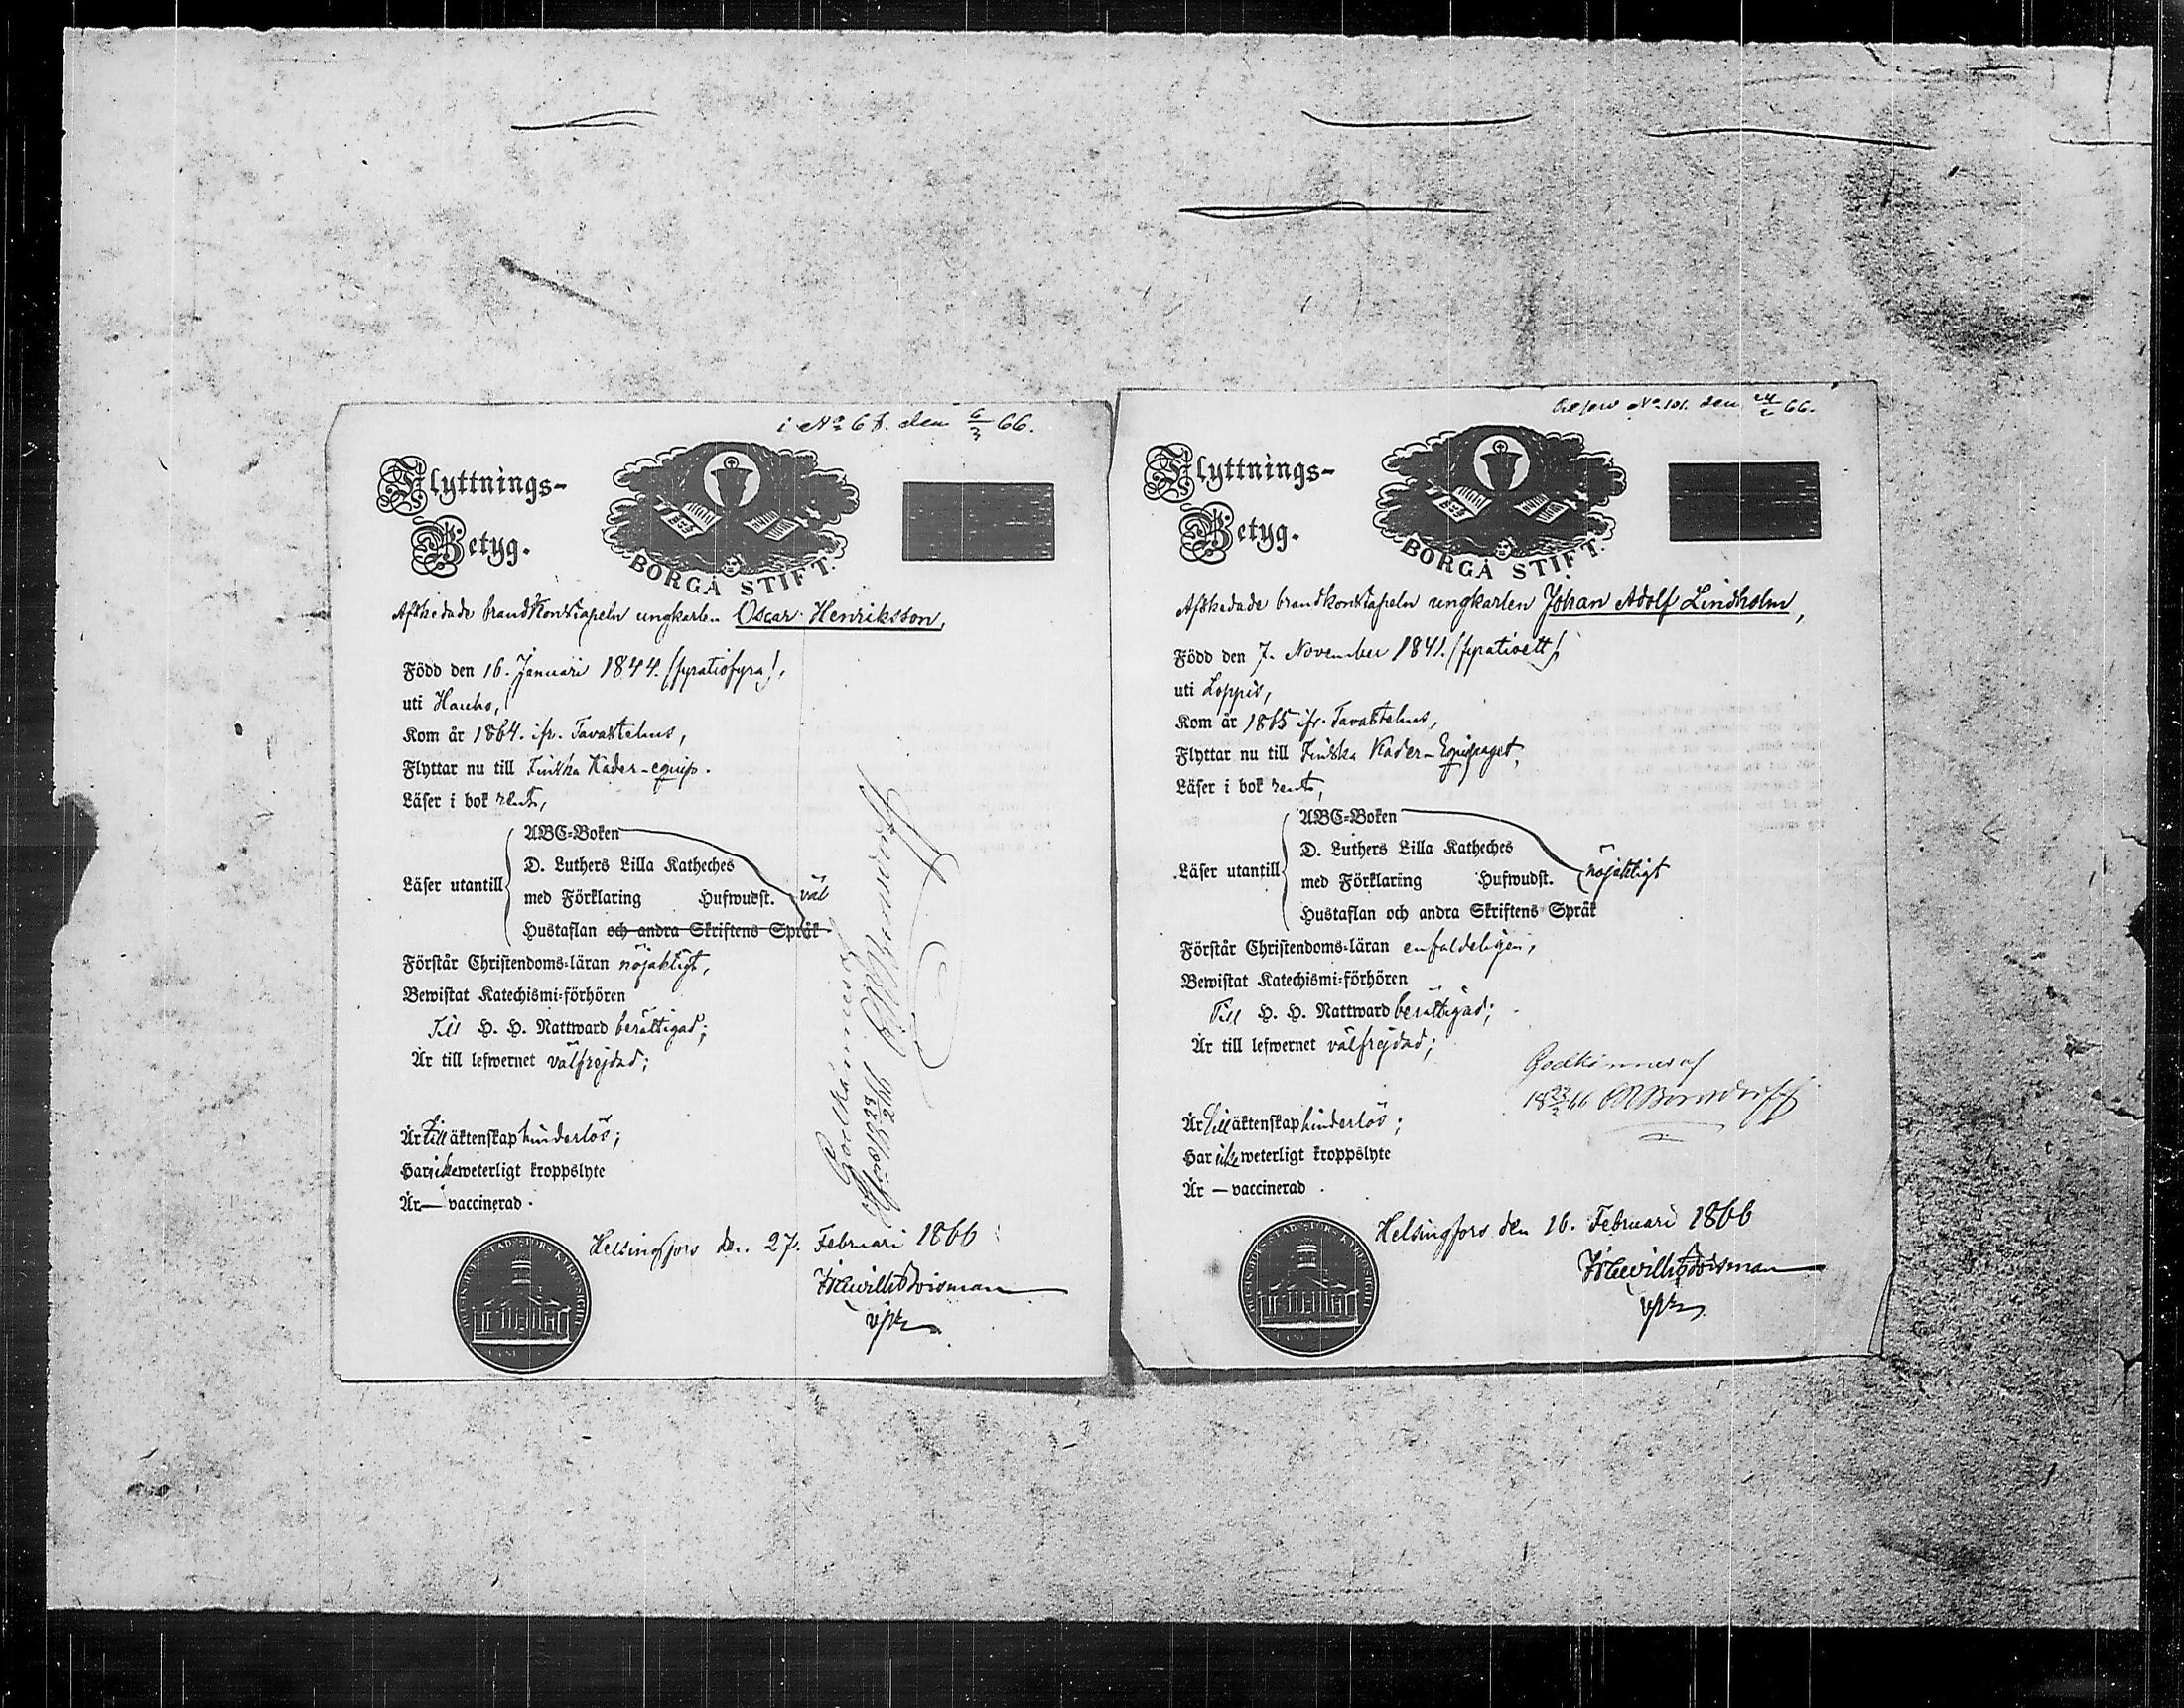 i No 67. den 6/3 66.
Flyttnings-
Betyg.
BORGÅ STIFT.
Afskedade brandkonstapeln ungkarlen Oscar Henriksson,
Född den 16. Januari 1844. (fyratiofyra),
uti Hauho,
Kom år 1864. ifr. Tavastehus,
Flyttar nu till Finska Kader-equip.
Läser i bok rent,
Läser utantill
ABC-Boken
D. Luthers Lilla Katheches
med Förklaring Hufwudst. väl
Hustaflan och andra Skriftens Språk
Förstår Christendoms-läran nöjaktigt,
Bewistat Katechismi-förhören
Till H. H. Nattward berättigad;
Är till lefwernet välfrejdad;
Är till äktenskap hinderlös;
Har icke weterligt kroppslyte
Är — vaccinerad.
Godkännes af
Helsingfors den 27. Februari 1866
den No 101. den 24/2 66.
Flyttnings-
Betyg.
BORGÅ STIFT.
Afskedade brandkonstapeln ungkarlen Johan Adolf Lindholm,
Född den 7. November 1841. (fyratioett),
uti Loppis,
Kom år 1865 ifr. Tavastehus,
Flyttar nu till Finska Kader-Equipaget,
Läser i bok rent,
Läser utantill
ABC-Boken
D. Luthers Lilla Katheches
med Förklaring Hufwudst. nöjaktigt
Hustaflan och andra Skriftens Språk
Förstår Christendoms-läran enfaldeligen,
Bewistat Katechismi-förhören
Till H. H. Nattward berättigad;
Är till lefwernet välfrejdad;
Godkännes af
Är till äktenskap hinderlös;
Har icke weterligt kroppslyte
Är — vaccinerad.
Helsingfors den 16. Februari 1866